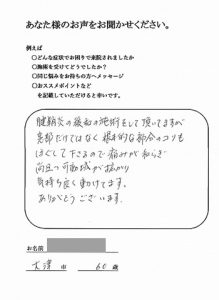 あなた様のお声をお聞かせください。
例えば
○どんな症状でお困りで来院されましたか
○施術を受けてどうでしたか？
○同じ悩みをお持ちの方へメッセージ
○おススメポイントなど
を記載していただけると幸いです。
腱鞘炎の緩和の施術をして頂いてますが
患部だけではなく根本的な部分のコリも
ほぐして下さるので痛みが和らぎ
尚且つ可動域が拡がり
気持ち良く動けてます。
ありがとうございます。
お名前
大津 市 60 歳